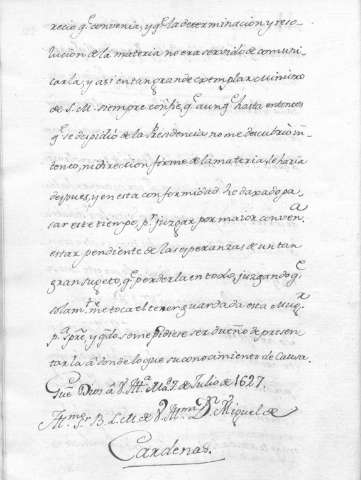 recio q.e convenia, y q.e la determinacion y reso-
lucion de la materia no era servido de comuni-
carla, y asi en tan grande exemplar, y ministro
de S. M. siempre confie, q.e aunq.e hasta entonces
q.e se despidió de la Presidencia no me descubrió in-
tento, ni direccion firme de la materia, le haria
despues, y en esta conformidad he dexado pa-
sar este tiempo, p.r juzgar por maior conven.a
estar pendiente de las esperanzas de un tan
gran sugeto, q.e perderla en todo, juzgando q.e
solam.te me toca el tener guardada esta
p.a spre, y q.do se me pidiere ser dueño de presen-
tarla á donde lo que su conocimiento de Causa.
Gue Dios á V. M.d 7 de Julio de 1627.
B. L. M. de V. D.n Miguel de
Cardenas.